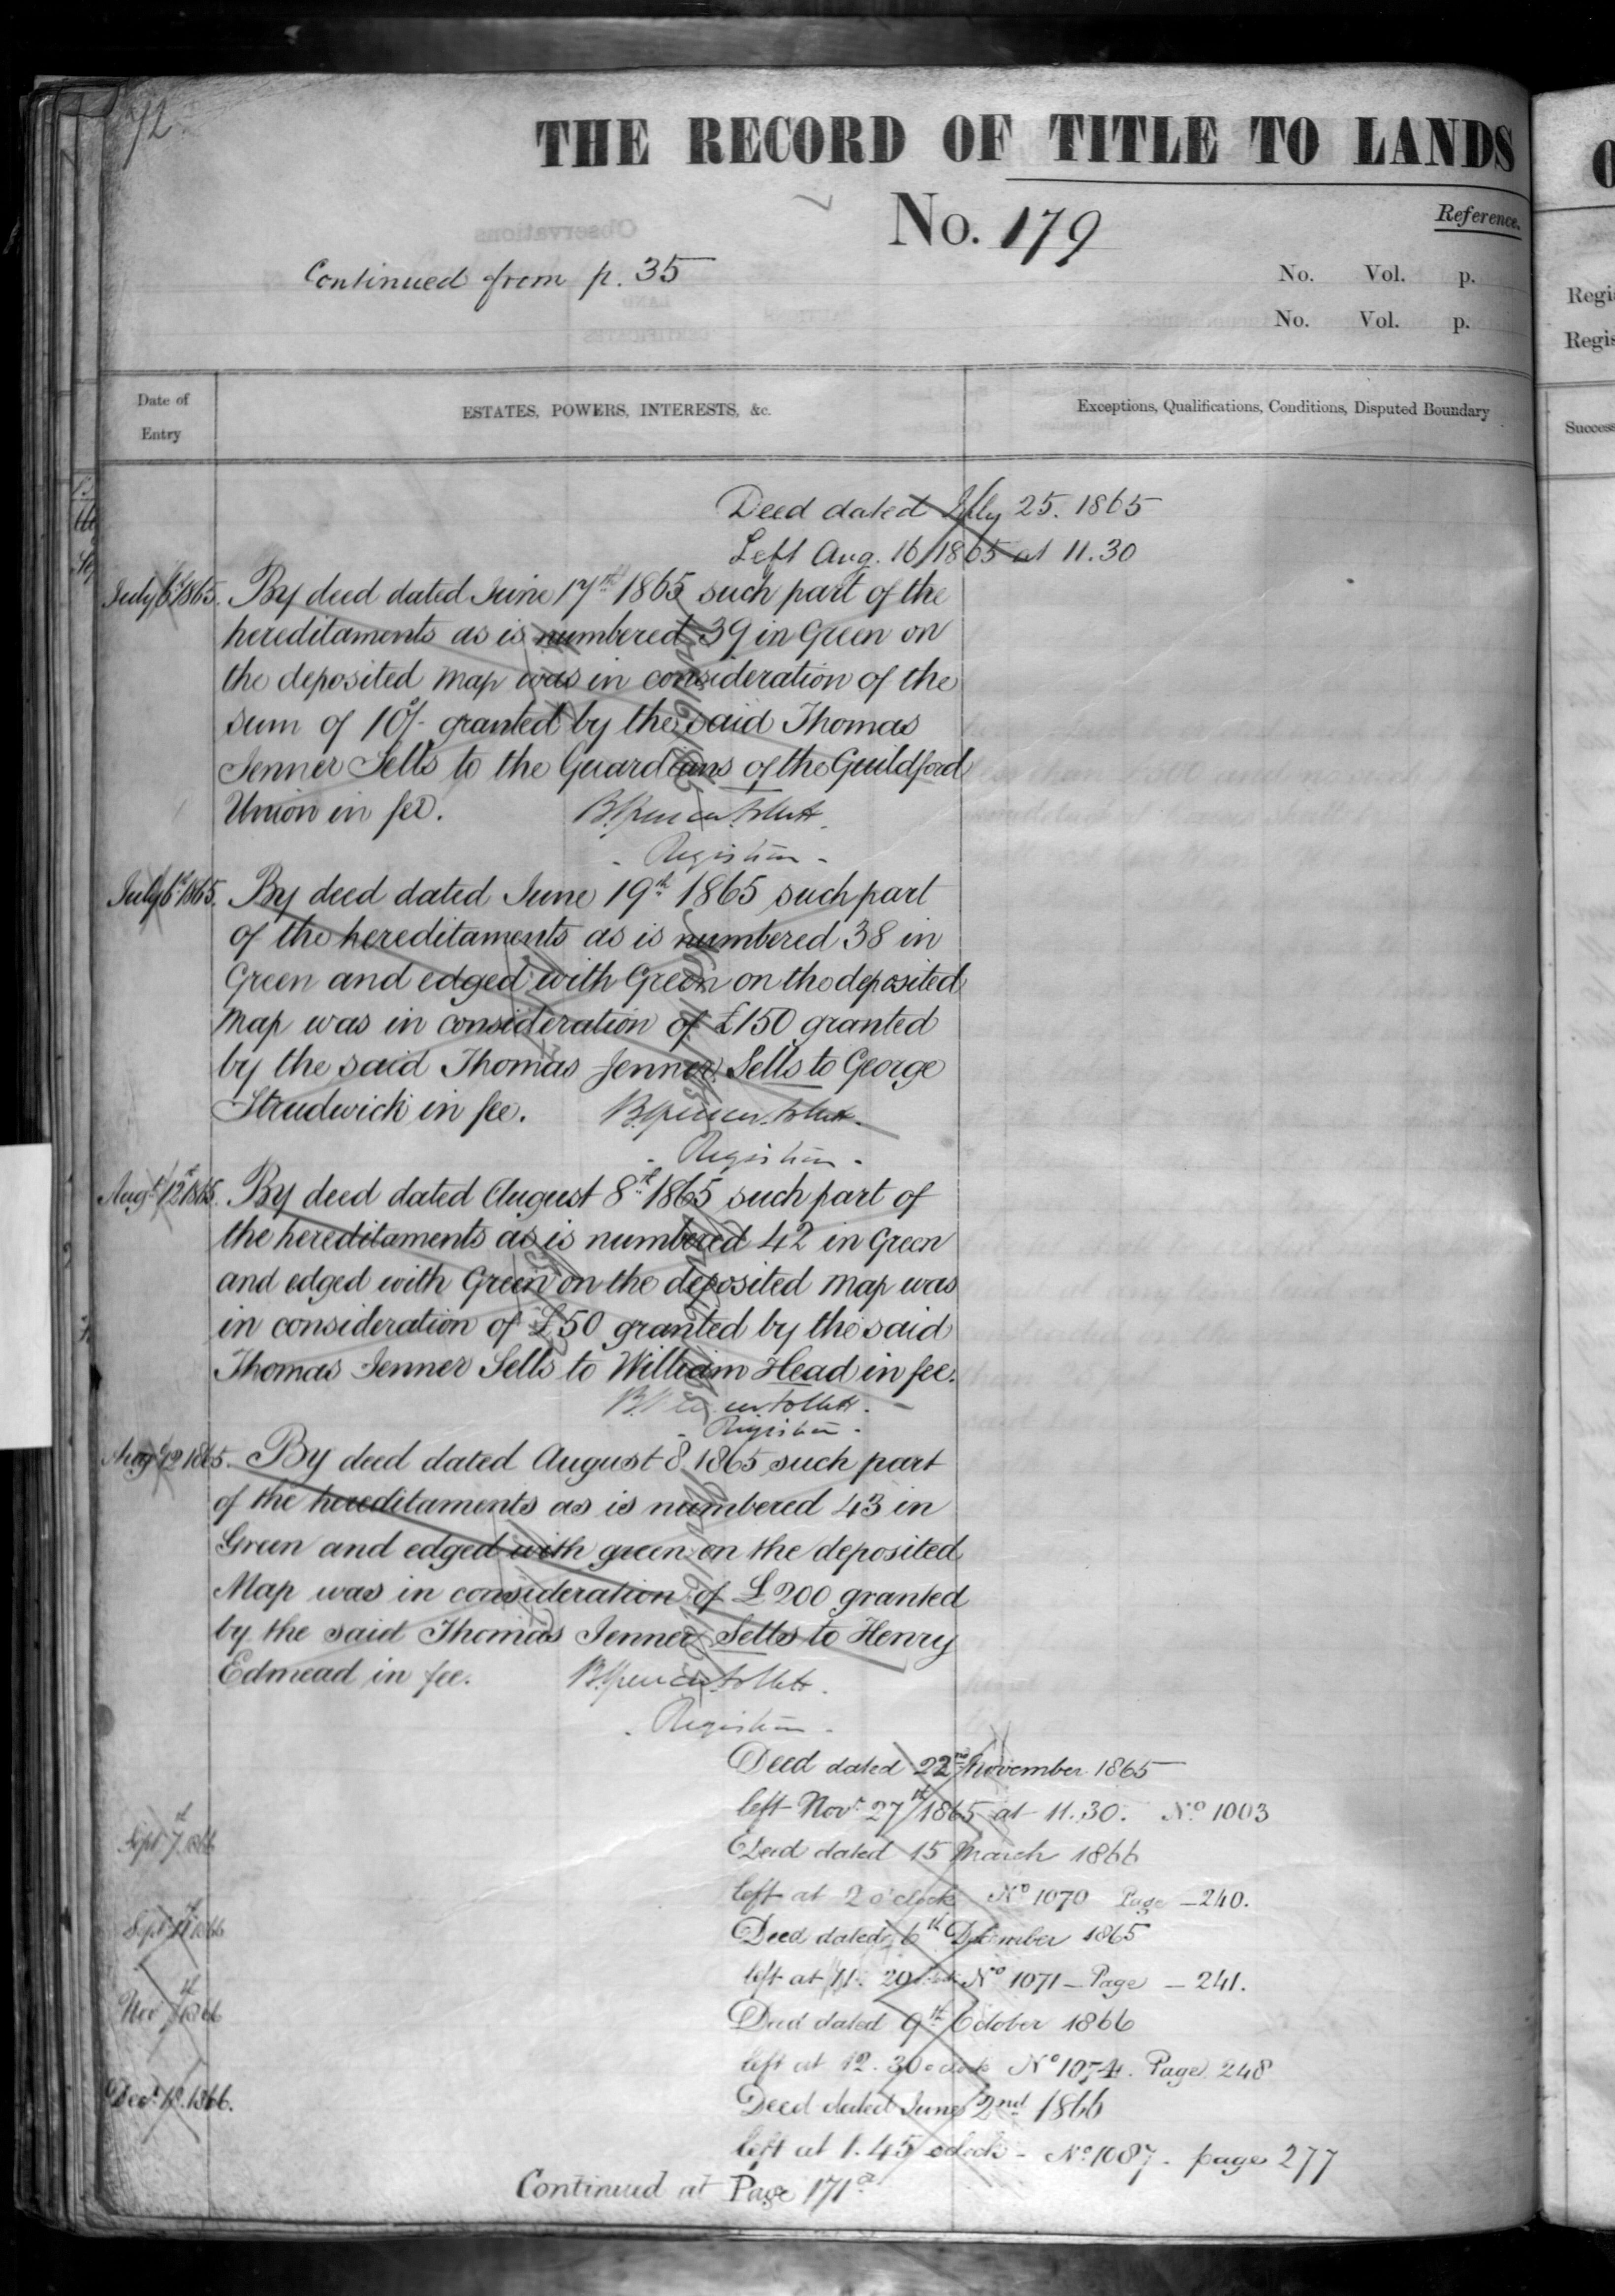 72
THE RECORD OF TITLE TO LANDS
No. 179
Reference.
Continued from p. 35
No. Vol. p.
No. Vol. p.
Date of Entry
ESTATES, POWERS, INTERESTS, &c.
Exceptions, Qualifications, Conditions, Disputed Boundary
Deed dated July 25. 1865
Left Aug. 16 1865 at 11.30
July 6th 1865. By deed dated June 17th 1865 such part of the
hereditaments as is numbered 39 in Green on
the deposited map was in consideration of the
sum of 10/- granted by the said Thomas
Jenner Sells to the Guardians of the Guildford
Union in fee.
Registrar
July 6th 1865. By deed dated June 19th 1865 such part
of the hereditaments as is numbered 38 in
Green and edged with Green on the deposited
Map was in consideration of £150 granted
by the said Thomas Jenner Sells to George
Strudwick in fee.
Registrar
Augt 12th 1865. By deed dated August 8th 1865 such part of
the hereditaments as is numbered 42 in Green
and edged with Green on the deposited map was
in consideration of £50 granted by the said
Thomas Jenner Sells to William Head in fee.
Registrar
Augt 12 1865. By deed dated August 8 1865 such part
of the hereditaments as is numbered 43 in
Green and edged with green on the deposited
Map was in consideration of £200 granted
by the said Thomas Jenner Sells to Henry
Edmead in fee.
Registrar
Deed dated 22nd November 1865
left Novr 27th 1865 at 11.30. No 1003
Sept 7th 1866
Deed dated 15 March 1866
left at 2 o'clock No 1070 Page - 240.
Sept 1866
Deed dated 6th December 1865
left at 11. 20 No 1071 - Page - 241.
Nov 1866
Deed dated 9th October 1866
left at 12.30 o'clock No 1074. Page 248
Decr 18. 1866.
Deed dated June 2nd 1866
left at 1.45 o'clock - No 1087 - page 277
Continued at Page 171a
Regis
Regis
Success